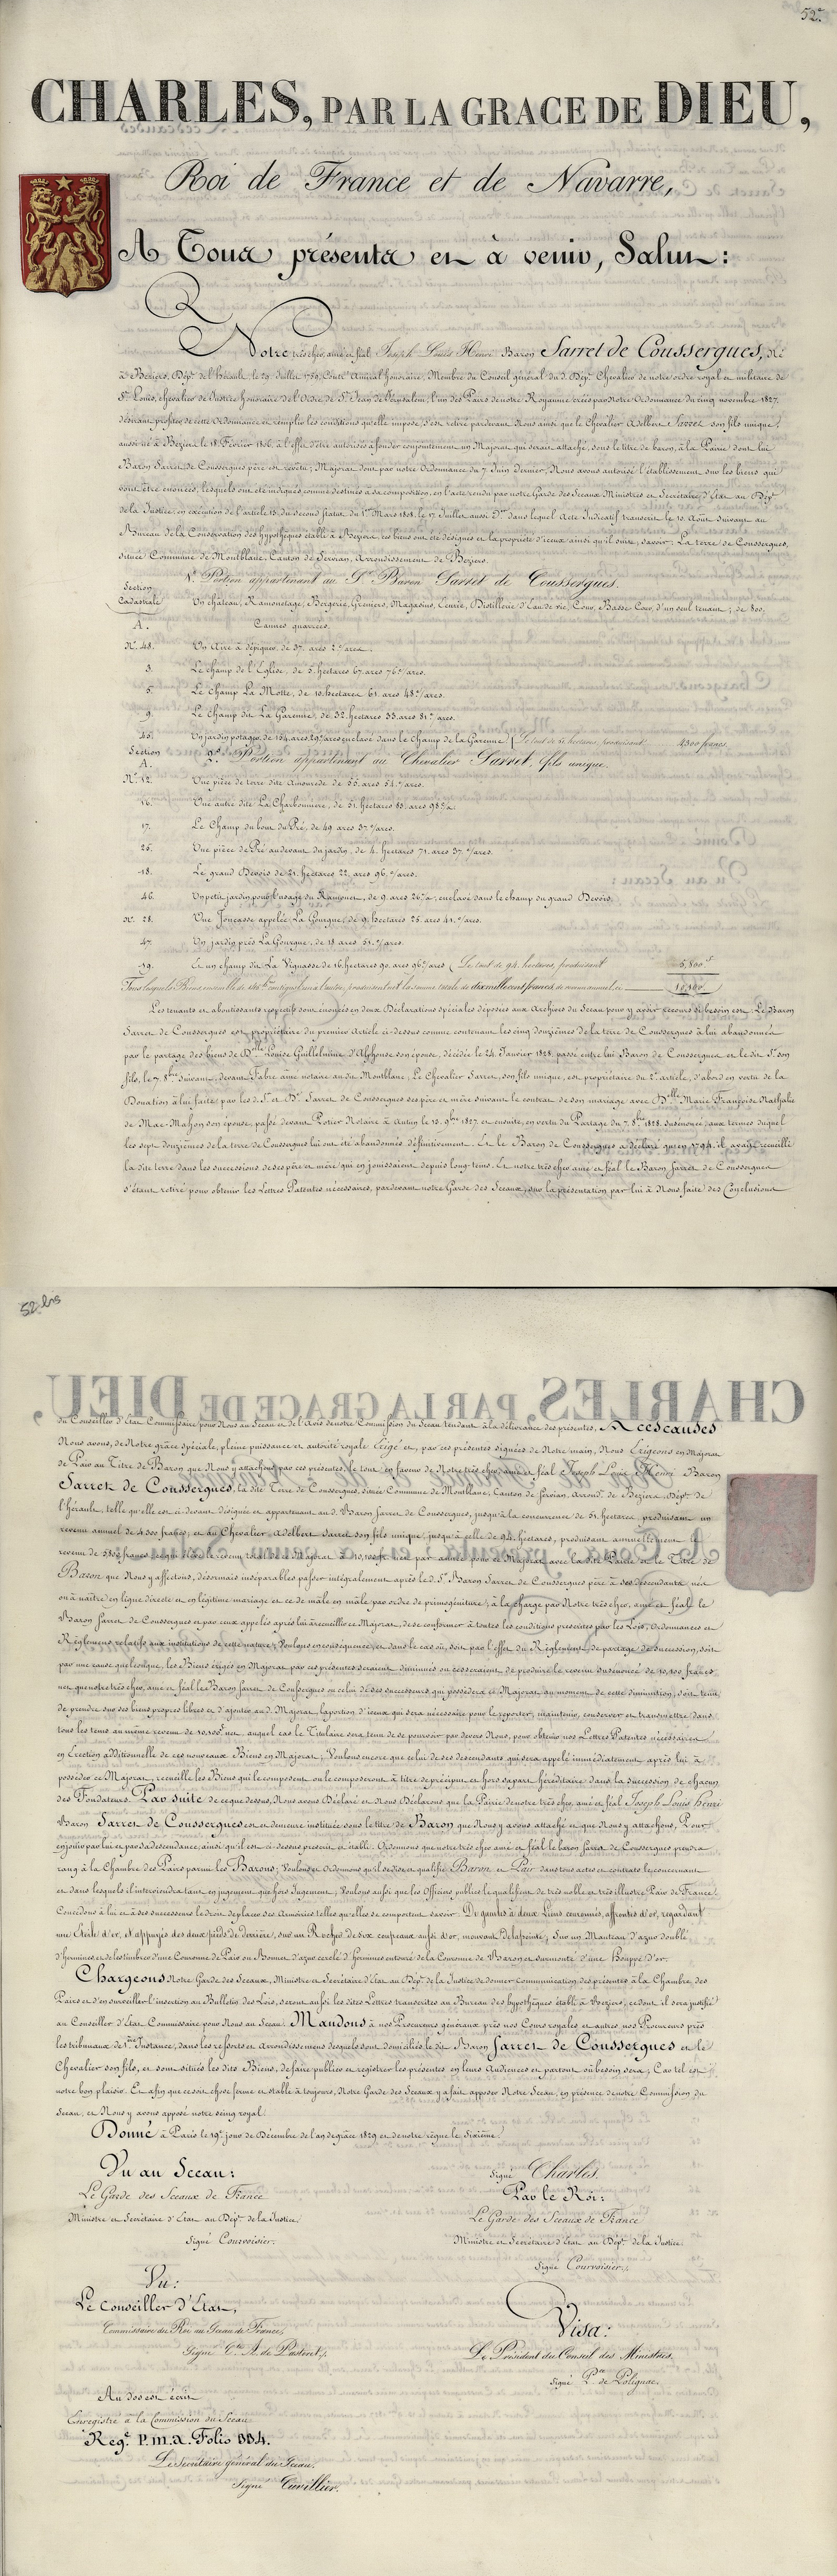 52.e
CHARLES, PAR LA GRACE DE DIEU,
Roi de France et de Navarre,
A Tous présents et à venir, Salut :
Notre très cher, amé et féal Joseph Louis Henri Baron Sarret de Coussergues, Né
à Beziers, Dépt. de l'Hérault, le 29 Juillet 1759, Contre Amiral honoraire, Membre du Conseil général du d. Dépt. Chevalier de notre ordre royal et militaire de
St. Louis, chevalier de Justice honoraire de l'Ordre de St. Jean de Jérusalem, l'un des Pairs de notre Royaume créés par Notre Ordonnance du cinq novembre 1827,
désirant profiter de cette Ordonnance et remplir les conditions qu'elle impose, s'est retiré pardevant Nous ainsi que le Chevalier Adelbert Sarret son fils unique,
aussi né à Beziers le 18 Février 1806, à l'effet d'être autorisés à fonder conjointement un Majorat qui serait attaché, sous le titre de baron, à la Pairie dont lui
Baron Sarret de Coussergues père est revêtu ; Majorat dont par notre Ordonnance du 7 Juin dernier, Nous avons autorisé l'établissement sur les biens qui
vont être énoncés, lesquels ont été indiqués comme destinés à sa composition, en l'acte rendu par notre Garde des Sceaux Ministre et Secrétaire d'Etat au Dépt.
de la Justice, en exécution de l'article 13 du second statut du 1er Mars 1808, le 17 Juillet aussi Dr. dans lequel Acte Indicatif transcrit le 10 Août suivant au
Bureau de la Conservation des hypothèques établi à Beziers, ces biens ont été désignés et la propriété d'iceux ainsi qu'il suit, savoir : La terre de Coussergues,
située Commune de Montblanc, Canton de Servian, Arrondissement de Beziers.
1°. Portion appartenant au Sr. Baron Sarret de Coussergues.
Section Cadastrale A. Un château, Ramonetage, Bergerie, Greniers, Magasins, Ecurie, Distillerie d'Eau de vie, Cour, Basse Cour, d'un seul tenant ; de 800
Cannes quarrées.
N°. 48. Un Aire à dépiquer, de 37 ares 2 c/ares.
3. Le champ de l'Eglise, de 5 hectares 67 ares 76 c/ares.
5. Le Champ La Motte, de 10 hectares 61 ares 48 c/ares.
9. Le Champ dit La Garenne, de 32 hectares 33 ares 81 c/ares.
40. Un jardin potager, de 164 ares 29 c/ares enclavé dans le Champ de la Garenne ( Le tout de 51 hectares, produisant 4300 francs.
Section A. 2°. Portion appartenant au Chevalier Sarret, fils unique.
N°. 12. Une pièce de terre dite Amourède de 55 ares 54 c/ares.
16. Une autre dite La Charbonnière, de 31 hectares 83 ares 98 c/a.
17. Le Champ du bout du Pré, de 49 ares 37 c/ares.
25. Une pièce de Pré au devant du jardin, de 4 hectares 71 ares 37 c/ares.
18. Le grand Devois de 21 hectares 22 ares 96 c/ares.
46. Un petit jardin pour l'usage du Ramonet, de 9 ares 26 c/a, enclavé dans le champ du grand Devois.
N°. 28. Une Joncasse appelée La Gourgue, de 9 hectares 25 ares 41 c/ares.
47. Un jardin près La Gourgue, de 18 ares 51 c/ares.
19. Et un champ dit La Vignasse de 16 hectares 90 ares 96 c/ares ( Le tout de 94 hectares, produisant 5,800 f
Tous lesquels Biens, ensemble de 145 h contigus l'un à l'autre, produisent net la somme totale de dix mille cent francs, de revenu annuel, ci 10,100 f
Les tenants et aboutissants respectifs sont énoncés en deux Déclarations spéciales déposées aux Archives du Sceau pour y avoir recours si besoin est. Le Baron
Sarret de Coussergues est propriétaire du premier Article ci-dessus comme contenant les cinq douzièmes de la terre de Coussergues à lui abandonnés
par le partage des biens de Dlle. Louise Guillelmine d'Alphonse son épouse, décédée le 24 Janvier 1828, passé entre lui Baron de Coussergues et le dit Sr. son
fils, le 7 8bre suivant, devant Fabre ainé notaire au dit Montblanc. Le Chevalier Sarret, son fils unique, est propriétaire du 2e. article, d'abord en vertu de la
Donation à lui faite par les d. Sr. et De. Sarret de Coussergues ses père et mère suivant le contrat de son mariage avec Dlle. Marie Françoise Nathalie
de Mac-Mahon son épouse, passé devant Potier Notaire à Autun le 13 9bre 1827, et ensuite, en vertu du Partage du 7 8bre 1828 susénoncé, aux termes duquel
les sept douzièmes de la terre de Coussergues lui ont été abandonnés définitivement. Et le Baron de Coussergues a déclaré qu'en 1794 il avait recueilli
la dite terre dans les successions de ses père et mère qui en jouissaient depuis long-tems. Et notre très cher amé et féal le Baron Sarret de Coussergues
s'étant retiré pour obtenir les Lettres Patentes nécessaires, pardevant notre Garde des Sceaux, sur la présentation par lui à Nous faite des Conclusions
52 bis
du Conseiller d'Etat Commissaire pour Nous au Sceau et de l'Avis de notre Commission du Sceau tendant à la délivrance des présentes, A ces causes
Nous avons, de Notre grâce spéciale, pleine puissance et autorité royale Erigé et, par ces présentes signées de Notre main, Nous Erigeons en Majorat
de Pair au Titre de Baron que Nous y attachons par ces présentes, le tout en faveur de Notre très cher, amé et féal Joseph Louis Henri Baron
Sarret de Coussergues, la dite Terre de Coussergues, située Commune de Montblanc, Canton de Servian, Arrondt. de Beziers, Dépt. de
l'Hérault, telle qu'elle est ci-devant désignée et appartenant au d. Baron Sarret de Coussergues, jusqu'à la concurrence de 51 hectares, produisant un
revenu annuel de 4300 francs, et au Chevalier Adelbert Sarret son fils unique, jusqu'à celle de 94 hectares, produisant annuellement le
revenu de 5800 francs, ce qui élève le revenu total de ce Majorat à 10,100 f net par année pour ce Majorat avec la dite Pairie et le Titre de
Baron que Nous y affectons, désormais inséparables passer intégralement après le d. Sr. Baron Sarret de Coussergues père à ses descendants nés
ou à naître en ligne directe et en légitime mariage et ce de mâle en mâle par ordre de primogéniture ; à la charge par Notre très cher, amé et féal le
Baron Sarret de Coussergues et par ceux appelés après lui à recueillir ce Majorat, de se conformer à toutes les conditions prescrites par les Lois, Ordonnances et
Réglemens relatifs aux institutions de cette nature ; Voulons en conséquence, et dans le cas où, soit par l'effet du Réglement de partage de succession, soit
par une cause quelconque, les Biens érigés en Majorat par ces présentes seraient diminués ou cesseraient de produire le revenu susénoncé de 10,100 francs
net que notre très cher, amé et féal le Baron Sarret de Coussergues ou celui de ses successeurs qui possédera ce Majorat au moment de cette diminution, soit tenu
de prendre sur ses biens propres libres et d'ajouter au d. Majorat, la portion d'iceux qui sera nécessaire pour le reporter, maintenir, conserver et transmettre dans
tous les tems au même revenu de 10,100 f net, auquel cas le Titulaire sera tenu de se pourvoir par devers Nous, pour obtenir nos Lettres Patentes nécessaires
en Erection additionnelle de ces nouveaux Biens en Majorat ; Voulons encore que celui de ses descendants qui sera appelé immédiatement après lui à
posséder ce Majorat, recueille les Biens qui le composent ou le composeront à titre de préciput et hors sa part héréditaire dans la succession de chacun
des Fondateurs. Par suite de ce que dessus, Nous avons Déclaré et Nous Déclarons que la Pairie de notre très cher, amé et féal Joseph Louis henri
Baron Sarret de Coussergues est et demeure instituée sous le titre de Baron que Nous y avons attaché et que Nous y attachons, Pour
en jouir par lui et par sa descendance, ainsi qu'il est ci-dessus prescrit et établi. Ordonnons que notre très cher amé et féal le baron Sarret de Coussergues prendra
rang à la Chambre des Pairs parmi les Barons ; Voulons et Ordonnons qu'il se dise et qualifie Baron et Pair dans tous actes et contrats le concernant
et dans lesquels il interviendra tant en jugement, que hors Jugement ; Voulons aussi que les Officiers publics le qualifient de très noble et très illustre Pair de France.
Concédons à lui et à ses successeurs le droit de placer ses Armoiries telles qu'elles se comportent savoir : De gueules à deux Lions couronnés, affrontés d'or, regardant
une Etoile d'or, et appuyés des deux pieds de derrière, sur un Rocher de six coupeaux aussi d'or, mouvant de la pointe ; Sur un Manteau d'azur doublé
d'hermines, et de les timbrer d'une Couronne de Pair ou Bonnet d'azur cerclé d'hermines entouré de la Couronne de Baron et surmonté d'une Houppe d'or.
Chargeons Notre Garde des Sceaux, Ministre et Secrétaire d'état au Dépt. de la Justice de donner communication des présentes à la Chambre des
Pairs et d'en surveiller l'insertion au Bulletin des Lois, seront aussi les dites Lettres transcrites au Bureau des hypothèques établi à Beziers, ce dont il sera justifié
au Conseiller d'Etat, Commissaire pour Nous au Sceau. Mandons à nos Procureurs généraux près nos Cours royales et autres nos Procureurs près
les tribunaux de 1ère Instance, dans les ressorts et Arrondissements desquels sont domiciliés le dit Baron Sarret de Coussergues et le
Chevalier son fils, et sont situés les dits Biens, de faire publier et registrer les présentes en leurs Audiences et partout où besoin sera ; Car tel est
notre bon plaisir. Et afin que ce soit chose ferme et stable à toujours, Notre Garde des Sceaux y a fait apposer Notre Sceau, en présence de notre Commission du
Sceau, et Nous y avons apposé notre seing royal.
Donné à Paris le 19e. jour de Décembre de l'an de grâce 1829 et de notre règne le Sixième.
Vu au Sceau :
Le Garde des Sceaux de France
Ministre et Secrétaire d'Etat au Dépt. de la Justice.
Signé Courvoisier.
Signé Charles.
Par le Roi :
Le Garde des Sceaux de France
Ministre et Secrétaire d'Etat au Dépt. de la Justice
Signé Courvoisier.
Vu :
Le Conseiller d'Etat,
Commissaire du Roi au Sceau de France,
Signé Cte. A. de Pastoret.
Visa :
Le Président du Conseil des Ministres.
Signé Pce. de Polignac.
Au dos est écrit
Enregistré à la Commission du Sceau
Reg.e P.m.2. Folio 334.
Le Secrétaire général du Sceau.
Signé Cuvillier.